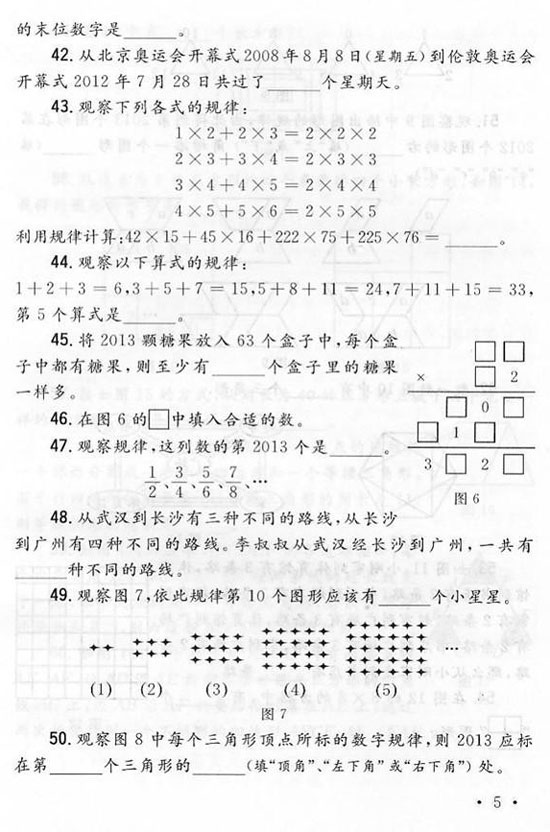 的末位数字是______。
42. 从北京奥运会开幕式2008年8月8日(星期五)到伦敦奥运会
开幕式2012年7月28日共过了______个星期天。
43. 观察下列各式的规律:
1×2+2×3=2×2×2
2×3+3×4=2×3×3
3×4+4×5=2×4×4
4×5+5×6=2×5×5
利用规律计算:42×15+45×16+222×75+225×76=______。
44. 观察以下算式的规律:
1+2+3=6,3+5+7=15,5+8+11=24,7+11+15=33,
第5个算式是______。
45. 将2013颗糖果放入63个盒子中,每个盒
子中都有糖果,则至少有______个盒子里的糖果
一样多。
46. 在图6的□中填入合适的数。
47. 观察规律,这列数的第2013个是______。
1/2、3/4、5/6、7/8、…
□□
× □2
□0□
□1□
3□2□
图6
48. 从武汉到长沙有三种不同的路线,从长沙
到广州有四种不同的路线。李叔叔从武汉经长沙到广州,一共有
______种不同的路线。
49. 观察图7,依此规律第10个图形应该有______个小星星。
…
(1) (2) (3) (4) (5)
图7
50. 观察图8中每个三角形顶点所标的数字规律,则2013应标
在第______个三角形的______(填“顶角”、“左下角”或“右下角”)处。
• 5 •